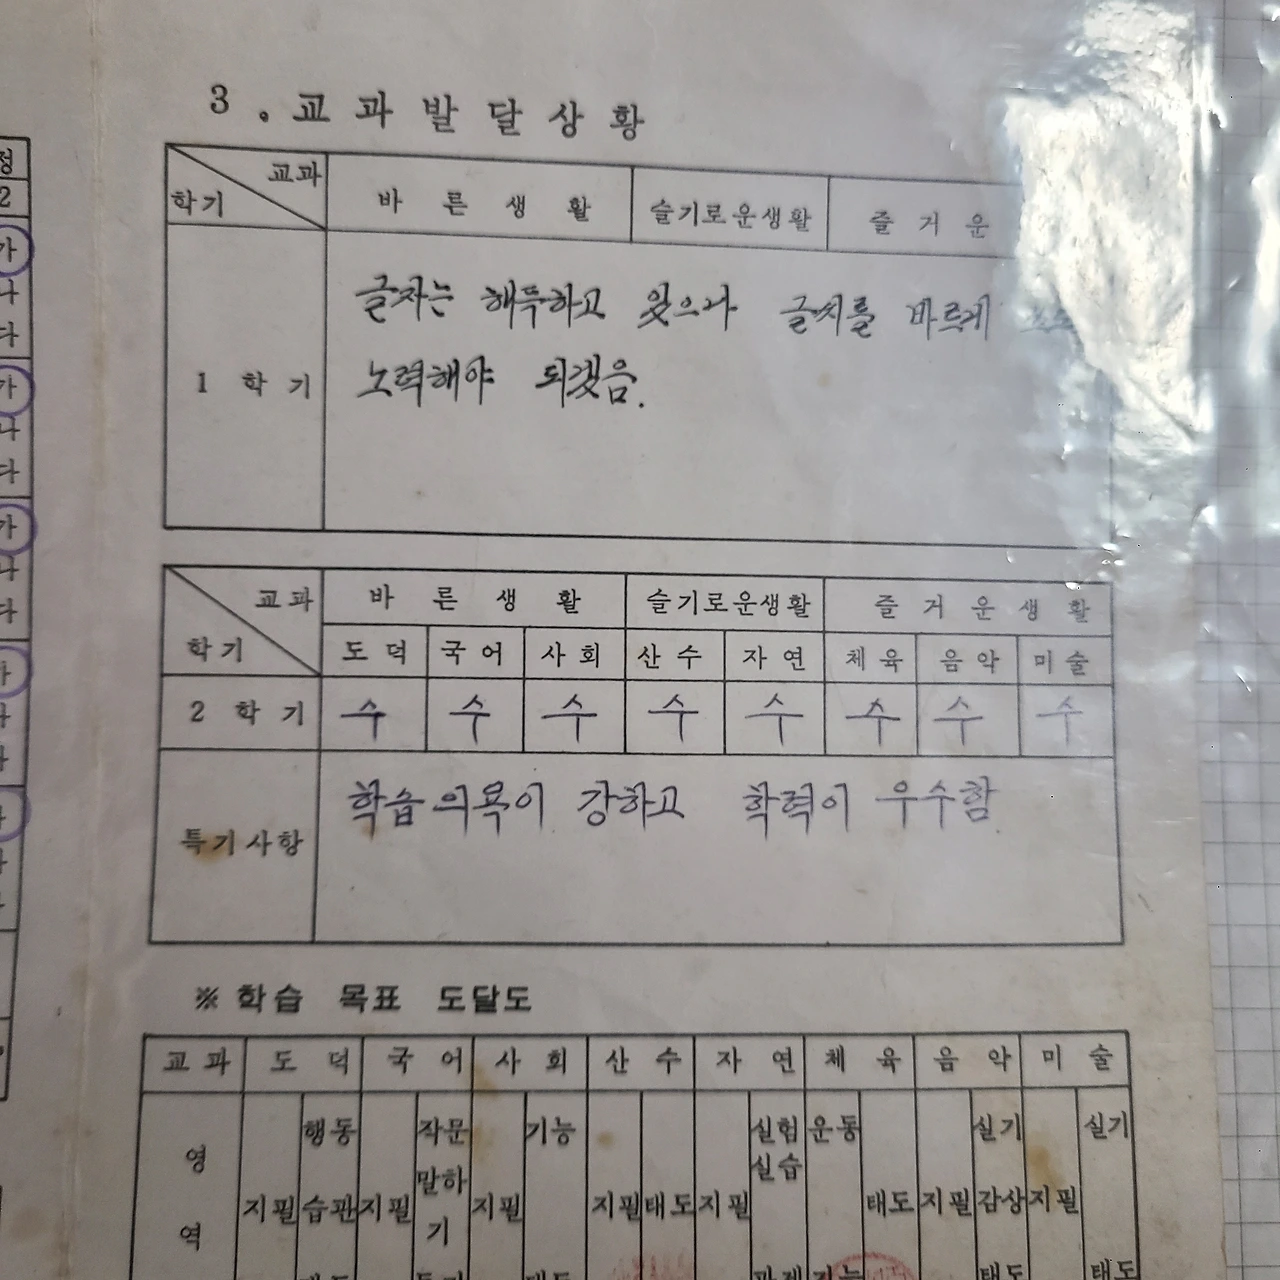 3. 교과발달상황
교과
학기
바른생활 슬기로운생활 즐거운
1학기
글자는 해득하고 있으나 글씨를 바르게
노력해야 되겠음.
교과
학기
바른생활 슬기로운생활 즐거운생활
도덕 국어 사회 산수 자연 체육 음악 미술
2학기 수 수 수 수 수 수 수 수
특기사항
학습의욕이 강하고 학력이 우수함
※ 학습 목표 도달도
교과 도덕 국어 사회 산수 자연 체육 음악 미술
영역
행동 작문 기능 실험 운동 실기 실기
말하 실습
지필 습관 지필 기 지필 지필 태도 지필 태도 지필 감상 지필
정
2
가
나
다
가
나
다
가
나
다